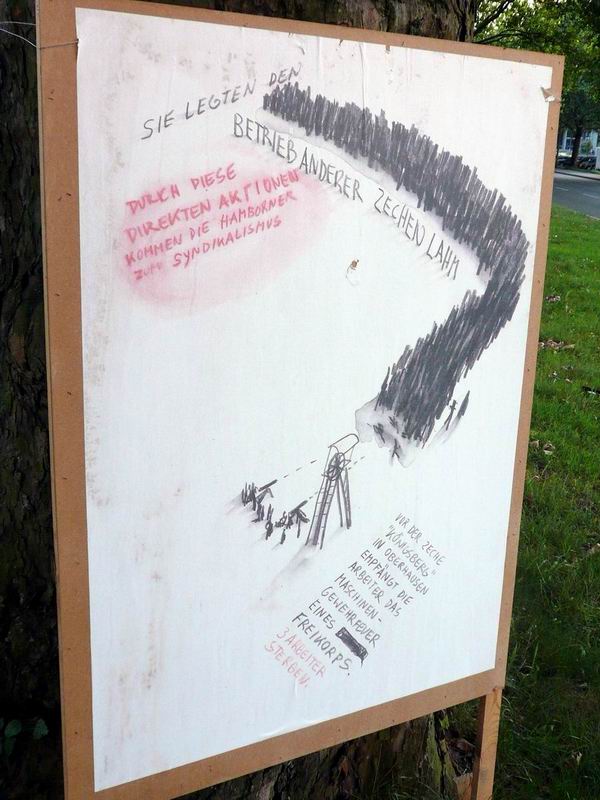 SIE LEGTEN DEN
BETRIEB ANDERER ZECHEN LAHM
DURCH DIESE
DIREKTEN AKTIONEN
KOMMEN DIE HAMBORNER
ZUM SYNDIKALISMUS
VOR DER ZECHE
"KÖNIGSBERG"
IN OBERHAUSEN
EMPFÄNGT DIE
ARBEITER DAS
MASCHINEN-
GEWEHRFEUER
EINES
FREIKORPS.
3 ARBEITER
STERBEN.